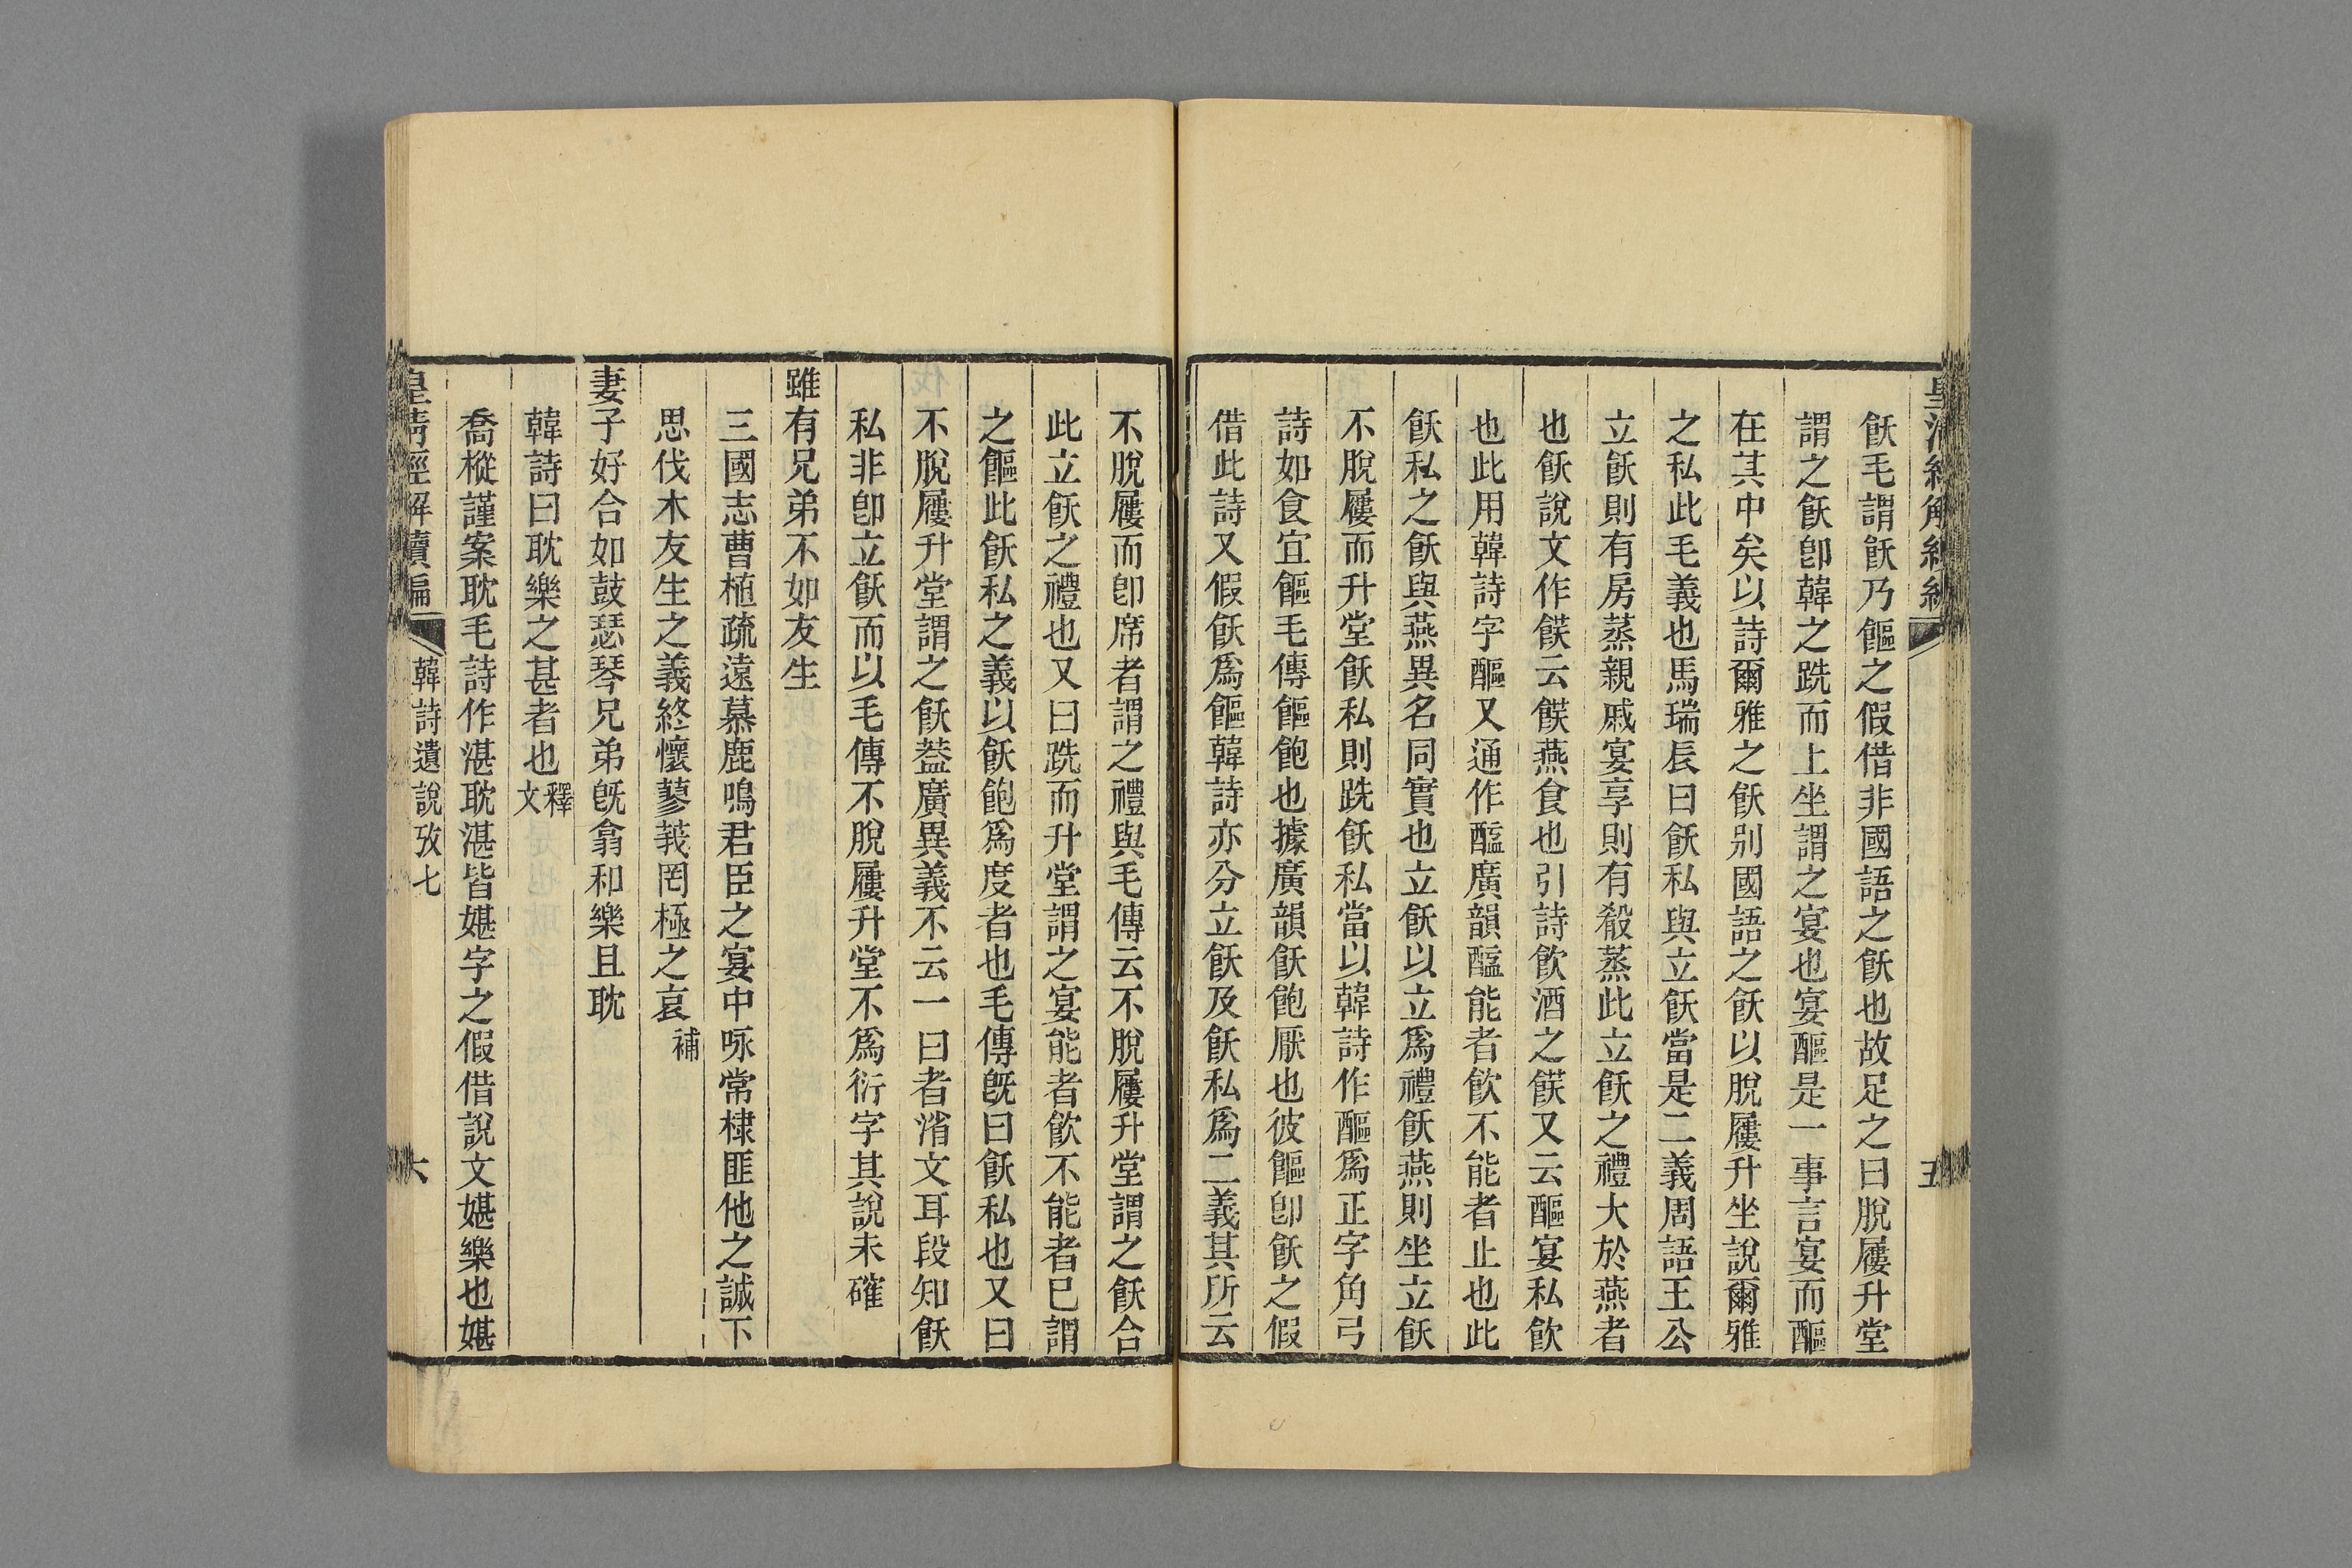 皇清經解續編 五
飫毛謂飫乃饇之假借非國語之飫也故足之曰脫屨升堂
謂之飫卽韓之跣而上坐謂之宴也宴醧是一事言宴而醧
在其中矣以詩爾雅之飫別國語之飫以脫屨升坐說爾雅
之私此毛義也馬瑞辰曰飫私與立飫當是二義周語王公
立飫則有房蒸親戚宴享則有殽蒸此立飫之禮大於燕者
也飫說文作䬵云䬵燕食也引詩飮酒之䬵又云醧宴私飮
也此用韓詩字醧又通作醖廣韻醖能者飮不能者止也此
飫私之飫與燕異名同實也立飫以立爲禮飫燕則坐立飫
不脫屨而升堂飫私則跣飫私當以韓詩作醧爲正字角弓
詩如食宜饇毛傳饇飽也據廣韻飫飽厭也彼饇卽飫之假
借此詩又假飫爲饇韓詩亦分立飫及飫私爲二義其所云
不脫屨而卽席者謂之禮與毛傳云不脫屨升堂謂之飫合
此立飫之禮也又曰跣而升堂謂之宴能者飮不能者已謂
之饇此飫私之義以飫飽爲度者也毛傳旣曰飫私也又曰
不脫屨升堂謂之飫葢廣異義不云一曰者渻文耳段知飫
私非卽立飫而以毛傳不脫屨升堂不爲衍字其說未確
雖有兄弟不如友生
三國志曹植疏遠慕鹿鳴君臣之宴中咏常棣匪他之誠下
思伐木友生之義終懷蓼莪罔極之哀補
妻子好合如鼓瑟琴兄弟旣翕和樂且耽
韓詩曰耽樂之甚者也釋文
喬樅謹案耽毛詩作湛耽湛皆媅字之假借說文媅樂也媅
皇清經解續編 韓詩遺說攷七 六